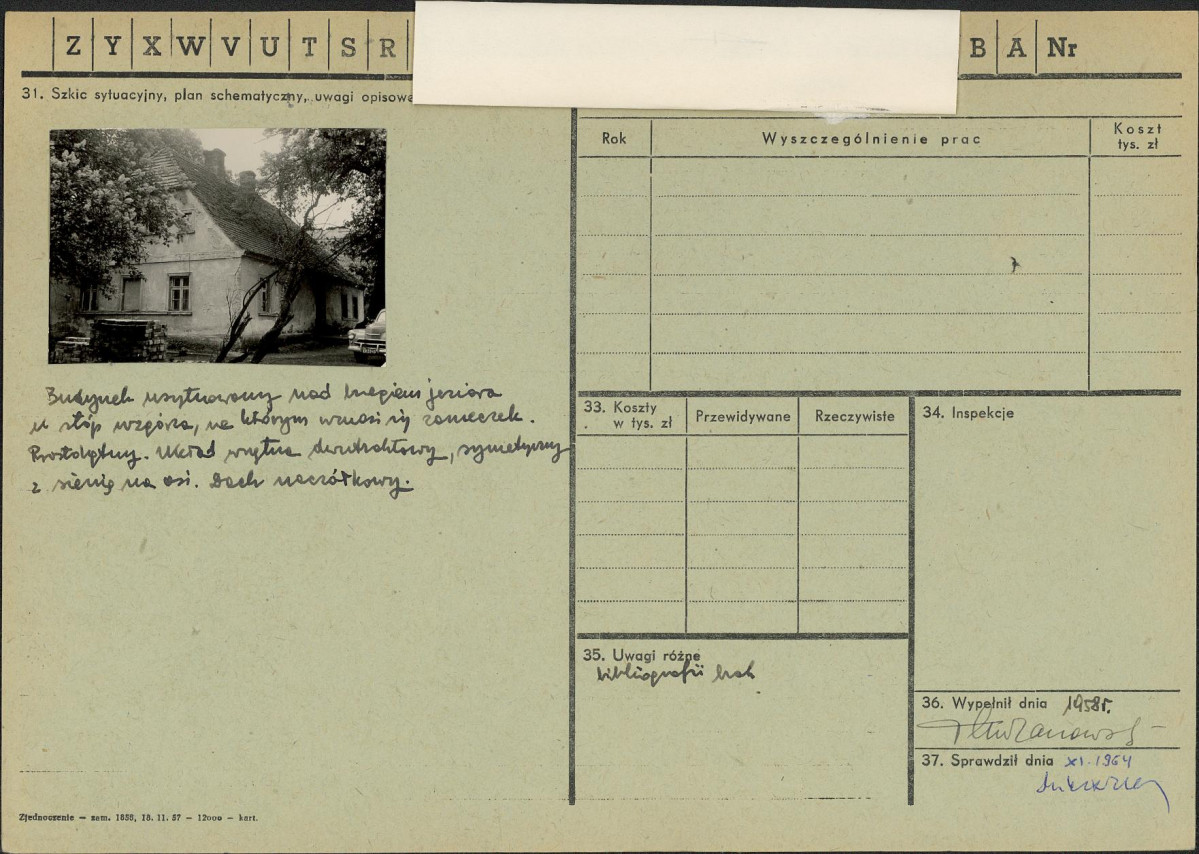 Z Y X W V U T S R B A Nr
31. Szkic sytuacyjny, plan schematyczny, uwagi opisowe
Rok Wyszczególnienie prac Koszt tys. zł
Budynek usytuowany nad brzegiem jeziora
u stóp wzgórza, na którym wznosi się zameczek.
Prostokątny. Układ wnętrza dwutraktowy, symetryczny
z sienią na osi. Dach naczółkowy.
33. Koszty w tys. zł Przewidywane Rzeczywiste
34. Inspekcje
35. Uwagi różne
bibliografii brak
36. Wypełnił dnia 1958r.
37. Sprawdził dnia XI.1964
Zjednoczenie — zam. 1858, 18. 11. 57 — 12000 — kart.